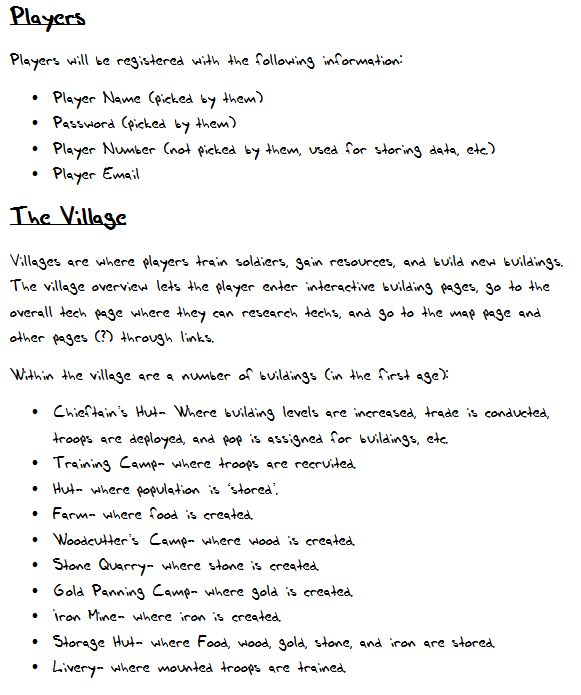 Players
Players will be registered with the following information:
• Player Name (picked by them)
• Password (picked by them)
• Player Number (not picked by them, used for storing data, etc.)
• Player Email
The Village
Villages are where players train soldiers, gain resources, and build new buildings.
The village overview lets the player enter interactive building pages, go to the
overall tech page where they can research techs, and go to the map page and
other pages (?) through links.
Within the village are a number of buildings (in the first age):
• Chieftain's Hut- Where building levels are increased, trade is conducted,
troops are deployed, and pop is assigned for buildings, etc.
• Training Camp- where troops are recruited.
• Hut- where population is 'stored'.
• Farm- where food is created.
• Woodcutter's Camp- where wood is created.
• Stone Quarry- where stone is created.
• Gold Panning Camp- where gold is created.
• Iron Mine- where iron is created.
• Storage Hut- where Food, wood, gold, stone, and iron are stored.
• Livery- where mounted troops are trained.